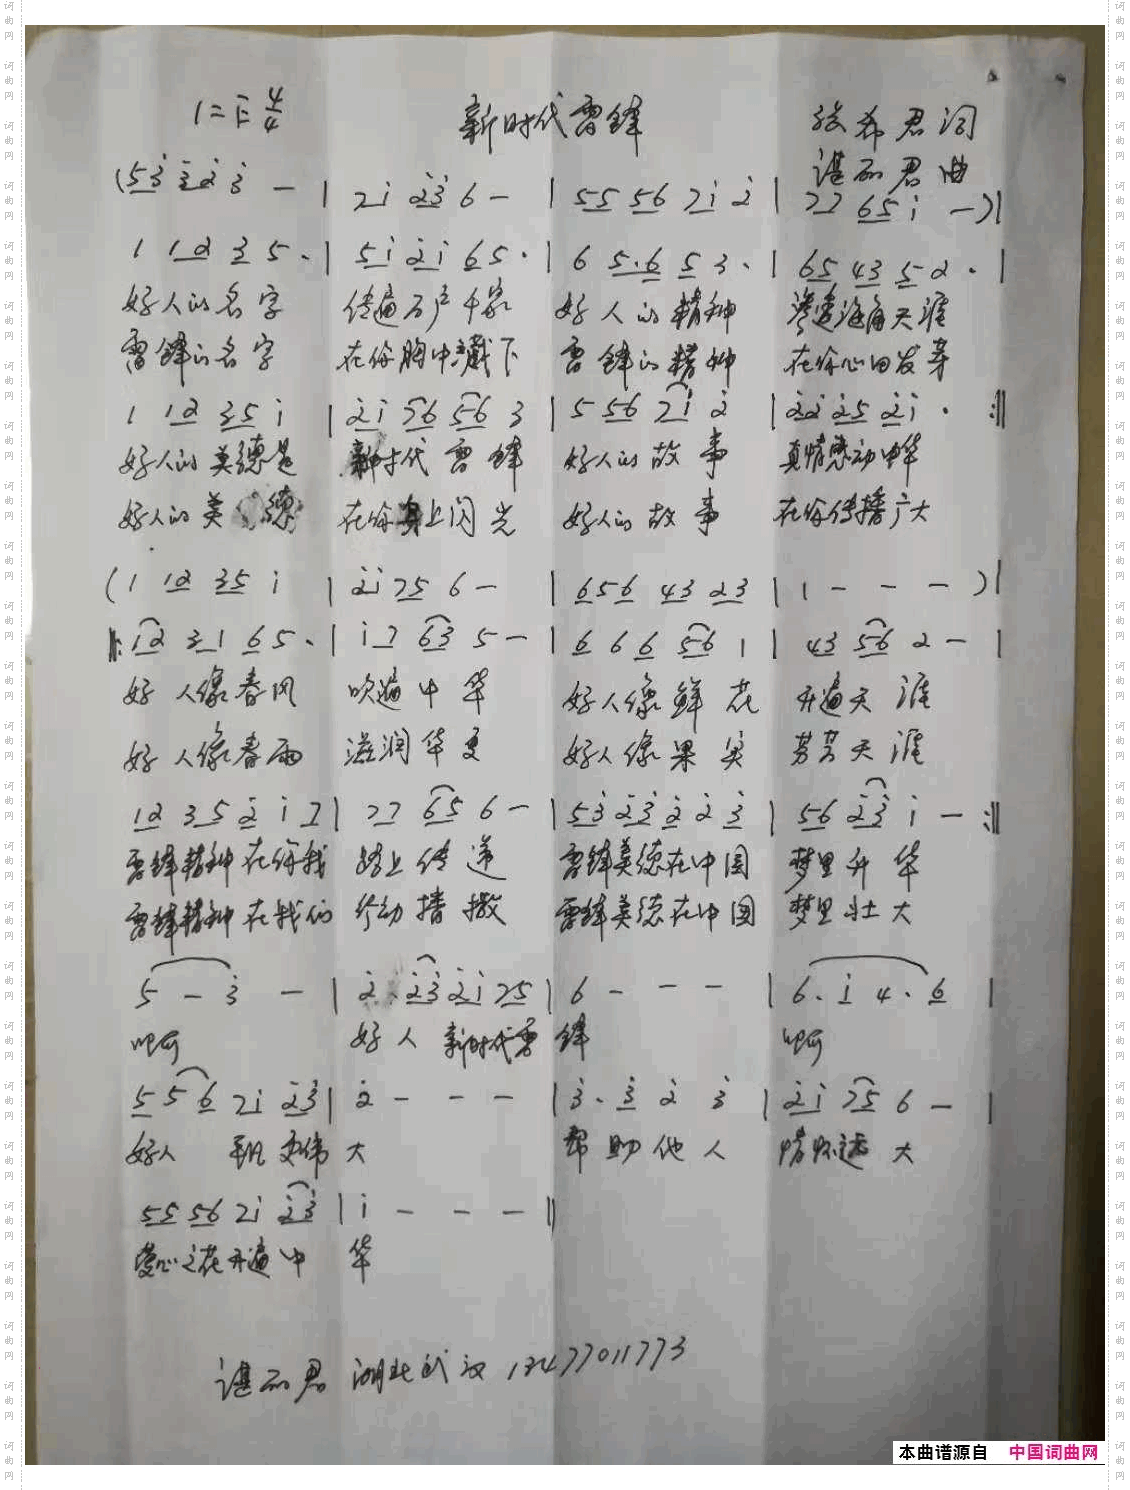 1=F 4/4 新时代雷锋 张希君词
谌丽君曲
(5 3̇ 3̇ 2̇ 3̇ — | 7 1̇ 2̇ 3̇ 6 — | 5 5 5 6 7 1̇ 2̇ | 7 7 6 5 1̇ —)|
1 1 2 3 5 · | 5 1̇ 2̇ 1̇ 6 5 · | 6 5 · 6 5 3 · | 6 5 4 3 5 2 · |
好人的名字 传遍万户千家 好人的精神 渗透海角天涯
雷锋的名字 在你胸中藏下 雷锋的精神 在你心田发芽
1 1 2 3 5 1̇ | 2̇ 1̇ 7 6 5 6 3 | 5 5 6 7 1̇ 2̇ | 2̇ 2̇ 2̇ 5 2̇ 1̇ · :‖
好人的美德是 新时代雷锋 好人的故事 真情感动中华
好人的美德 在你身上闪光 好人的故事 在你传播广大
(1 1 2 3 5 1̇ | 2̇ 1̇ 7 5 6 — | 6 5 6 4 3 2 3 | 1 — — —)|
‖: 1̇ 2 3 1 6 5 · | 1̇ 7 6 3 5 — | 6 6 6 5 6 1 | 4 3 5 6 2 — |
好人像春风 吹遍中华 好人像鲜花 开遍天涯
好人像春雨 滋润华夏 好人像果实 芬芳天涯
1 2 3 5 2̇ 1̇ 7 | 7 7 6 5 6 — | 5 3̇ 2̇ 3̇ 2̇ 2̇ 3̇ | 5 6 2̇ 3̇ 1̇ — :‖
雷锋精神在你我 路上传递 雷锋美德在中国 梦里升华
雷锋精神在我们 行动播撒 雷锋美德在中国 梦里壮大
5 — 3̇ — | 2̇ · 2̇ 3̇ 2̇ 1̇ 7 5 | 6 — — — | 6 · 1̇ 4 · 6 |
啊 好人 新时代雷 锋 啊
5 5 6 7 1̇ 2̇ 3̇ | 2̇ — — — | 3̇ · 3̇ 2̇ 3̇ | 2̇ 1̇ 7 5 6 — |
好人 平凡 伟 大 帮助他人 情怀远大
5 5 5 6 7 1̇ 2̇ 3̇ | 1̇ — — — ‖
爱心之花开遍中 华
谌丽君 湖北武汉 13477011773
本曲谱源自 中国词曲网